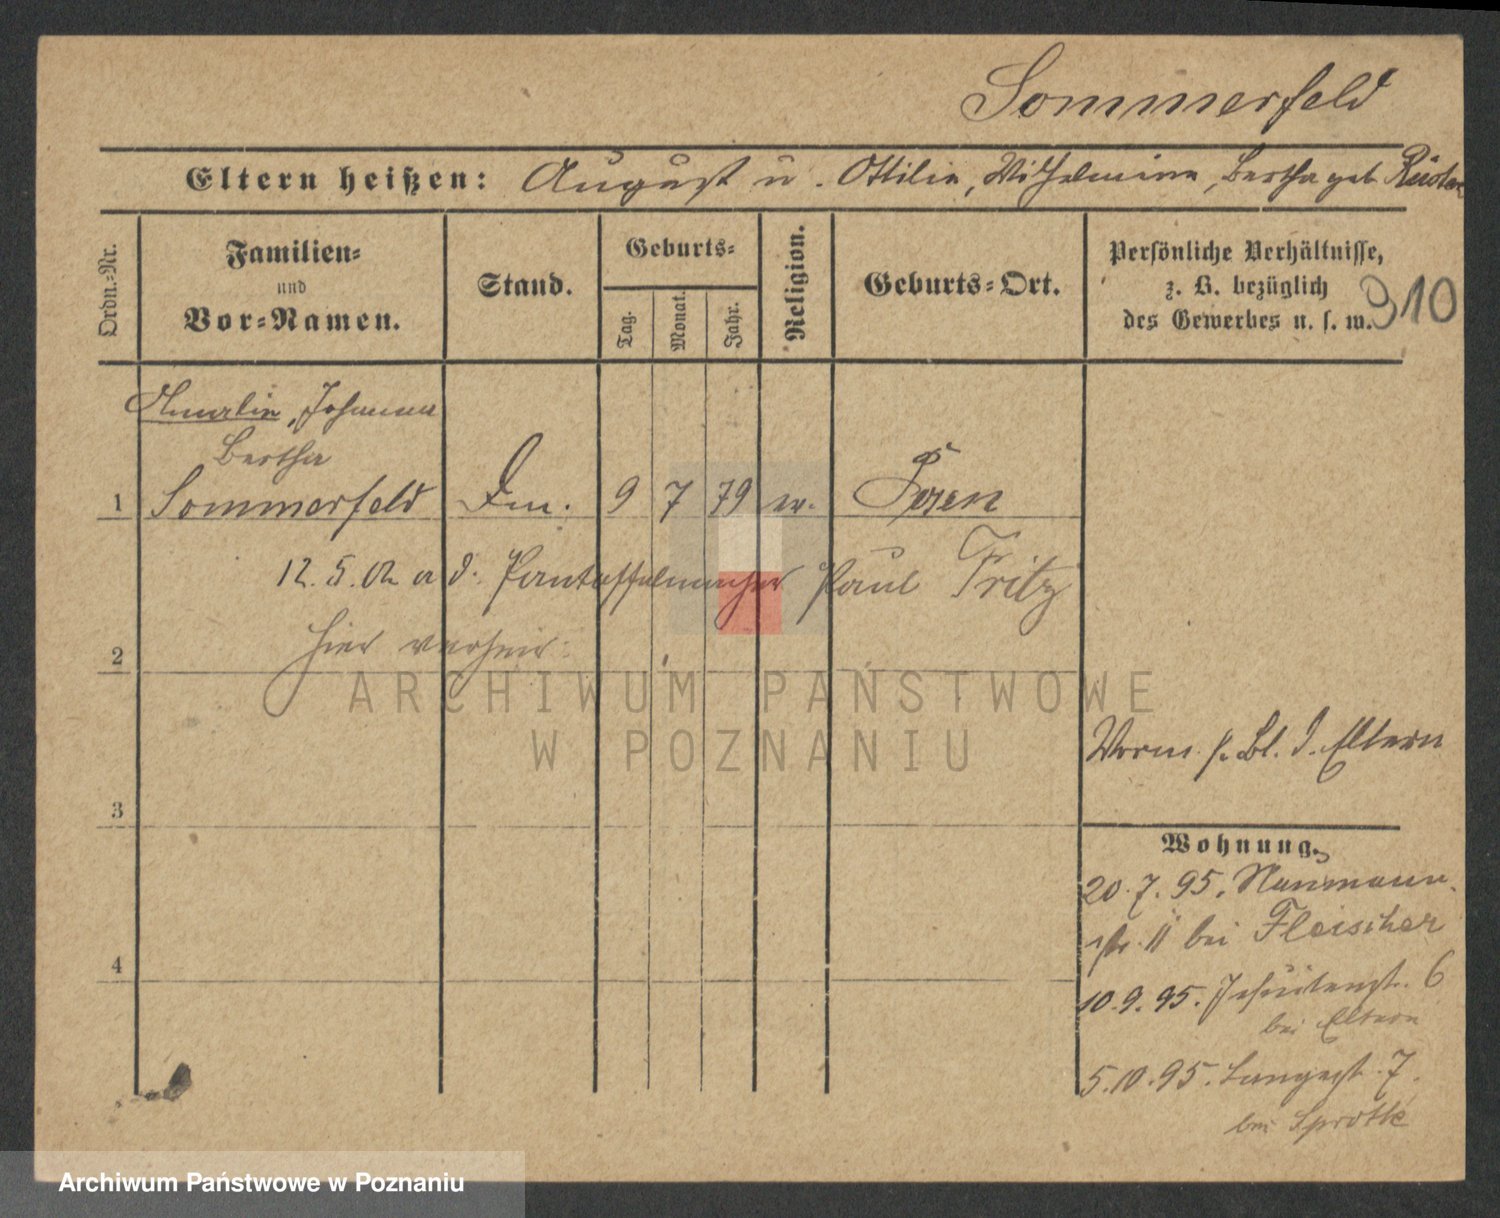 Sommerfeld
Eltern heißen: August u. Ottilie, Wilhelmine, Bertha geb.
Ordn.-Nr.
Familien-
und
Vor-Namen.
Stand.
Geburts-
Tag.
Monat.
Jahr.
Religion.
Geburts-Ort.
Persönliche Verhältnisse,
z. B. bezüglich
des Gewerbes u. s. w.
910
Amalie, Johanna
Bertha
1 Sommerfeld 9 7 79 ev. Posen
12. 5. a d. Pantoffelmacher Paul Fritz
hier verheir.
2
3
4
Vorm. s. Bl. d. Eltern
Wohnung.
20. 7. 95. Naumann-
str. 11 bei Fleischer
10. 9. 95. Jesuitenst. 6
bei Eltern
5. 10. 95. Langest. 7.
bei Sprotte
ARCHIWUM PAŃSTWOWE
W POZNANIU
Archiwum Państwowe w Poznaniu